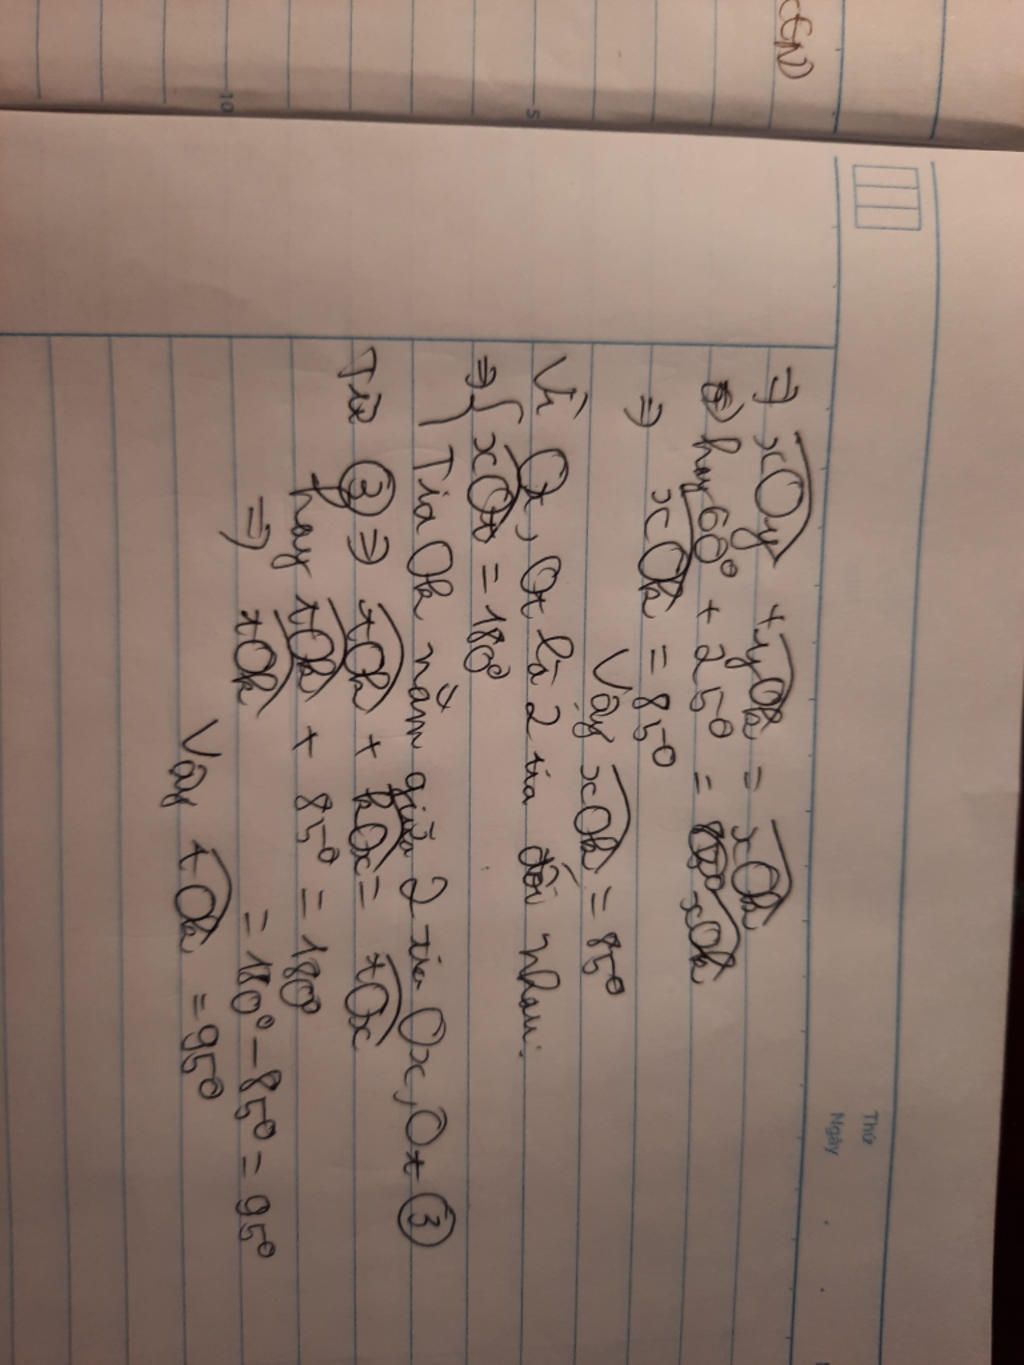 Thứ
Ngày
⇒ xOy + yOk = xOk
hay 60° + 25° = xOk
⇒ xOk = 85°
Vậy xOk = 85°
Vì Ox, Ot là 2 tia đối nhau.
⇒ { xOt = 180°
Tia Ok nằm giữa 2 tia Ox, Ot ③
Từ ③ ⇒ tOk + kOx = tOx
hay tOk + 85° = 180°
⇒ tOk = 180° - 85° = 95°
Vậy tOk = 95°
5
10